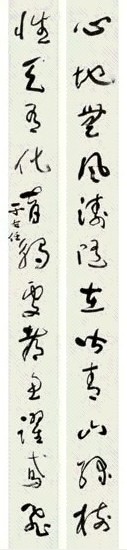 心地無風濤隨在皆青山綠樹
性天有化育觸處都魚躍鳶飛
于右任